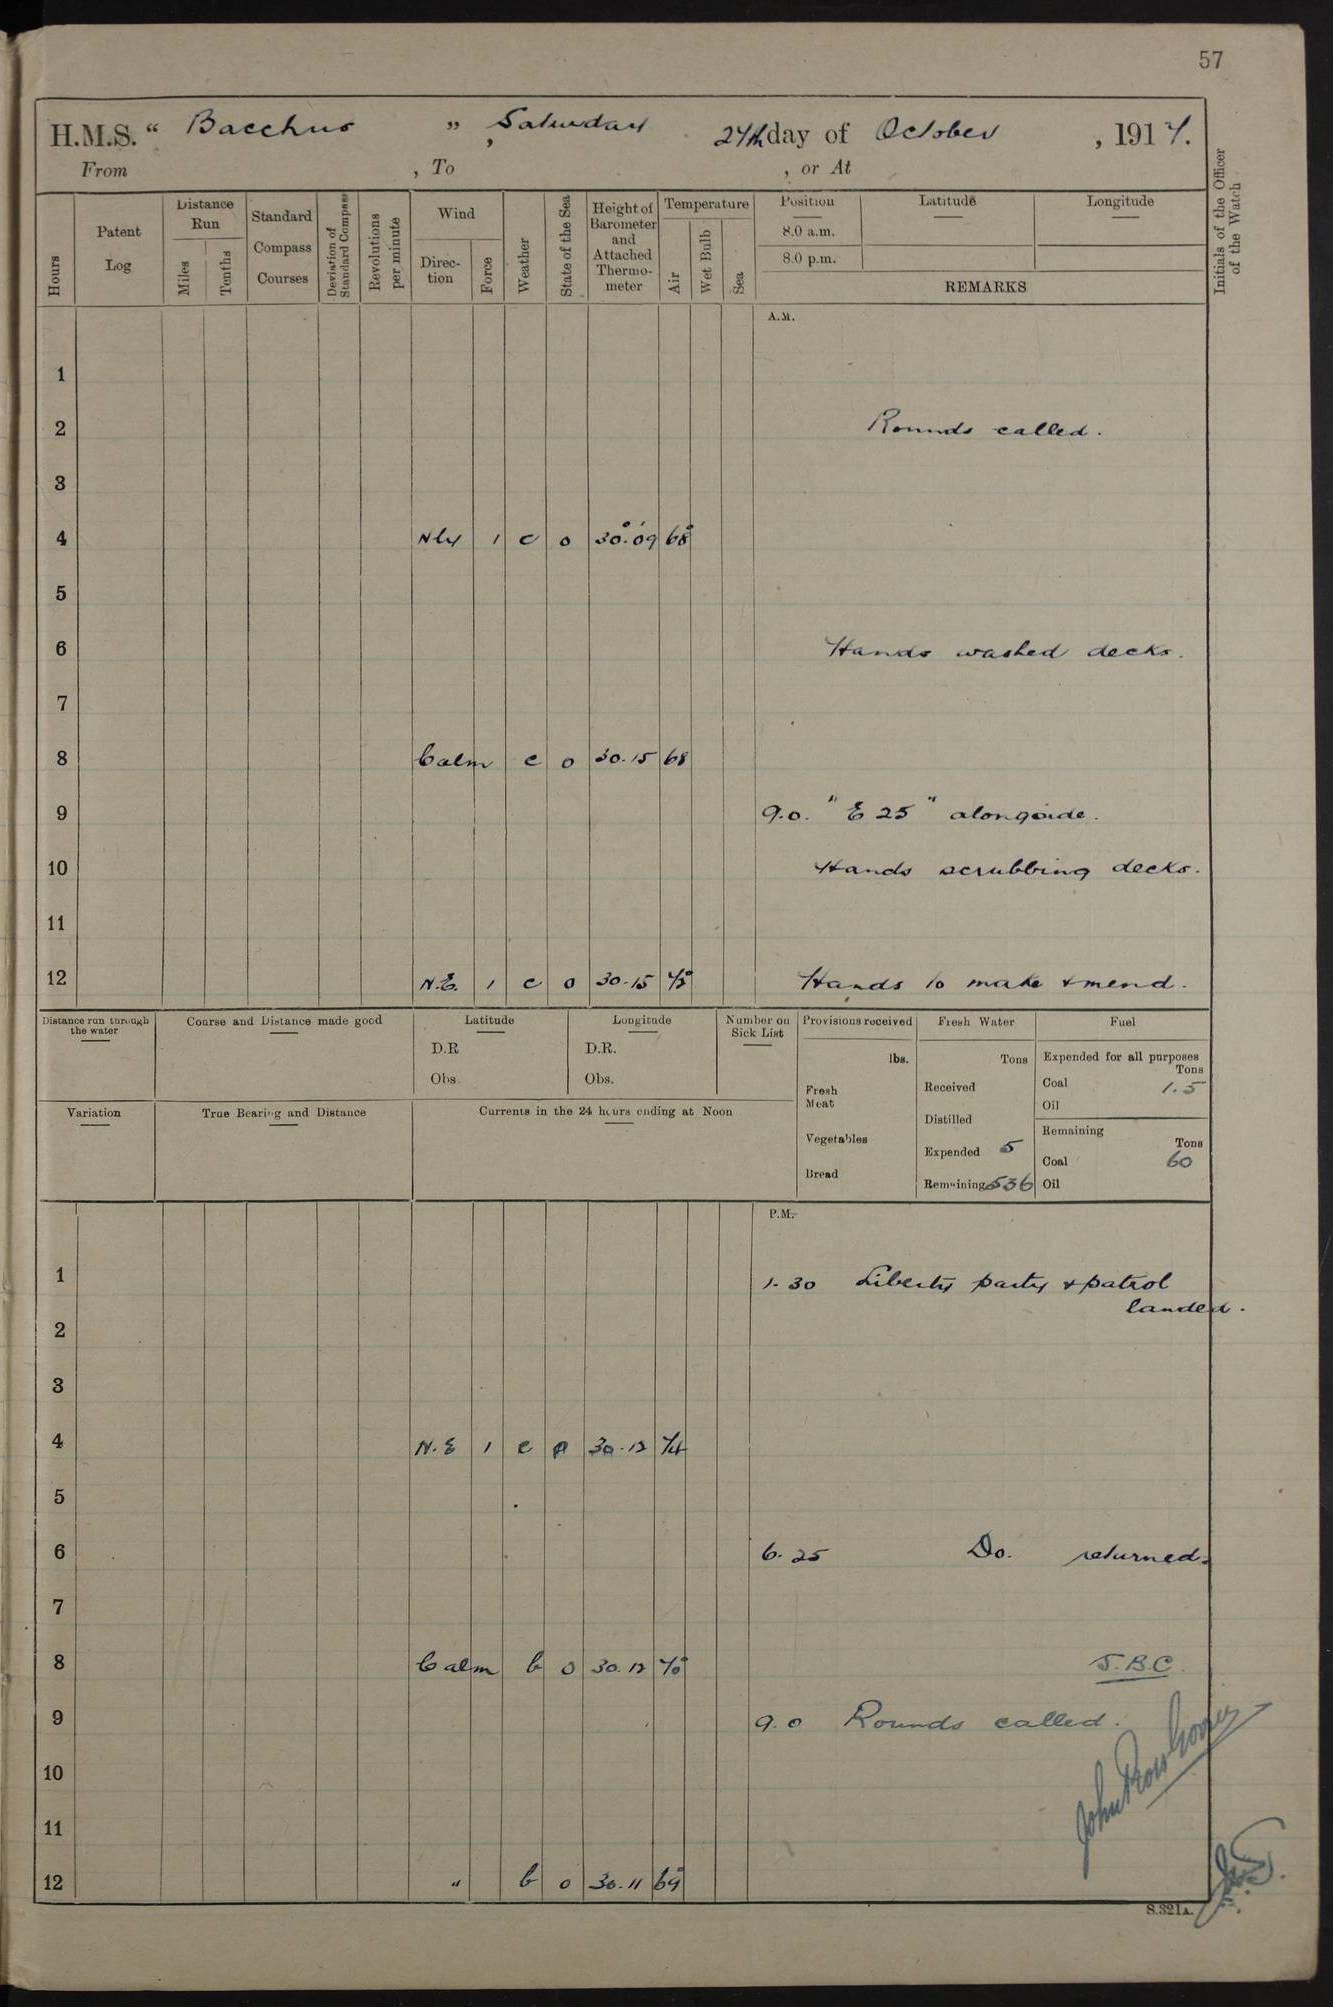 57
H.M.S. " Bacchus ", Saturday 27th day of October, 1917.
From , To , or At
Hours
Patent Log
Distance Run
Miles
Tenths
Standard Compass Courses
Deviation of Standard Compass
Revolutions per minute
Wind
Direc-tion
Force
Weather
State of the Sea
Height of Barometer and Attached Thermo-meter
Temperature
Air
Wet Bulb
Sea
Position
8.0 a.m.
8.0 p.m.
Latitude
Longitude
REMARKS
Initials of the Officer of the Watch
A.M.
1
2 Rounds called.
3
4 Nly 1 c 0 30.09 68°
5
6 Hands washed decks.
7
8 Calm c 0 30.15 68
9 9.0. "E 25" alongside.
10 Hands scrubbing decks.
11
12 N.E. 1 c 0 30.15 72° Hands to make & mend.
Distance run through the water
Course and Distance made good
Latitude
D.R
Obs.
Longitude
D.R.
Obs.
Number on Sick List
Provisions received
lbs.
Fresh Meat
Vegetables
Bread
Fresh Water
Tons
Received
Distilled
Expended 5
Remaining 536
Fuel
Expended for all purposes
Tons
Coal 1.5
Oil
Remaining
Tons
Coal 60
Oil
Variation
True Bearing and Distance
Currents in the 24 hours ending at Noon
P.M.
1 1.30 Liberty party & patrol
landed.
2
3
4 N.E 1 c 0 30.12 74
5
6 6.25 Do. returned.
7
8 Calm b 0 30.12 70° J.B.C.
9 9.0 Rounds called.
10
11
12 " b 0 30.11 69°
S.321A.